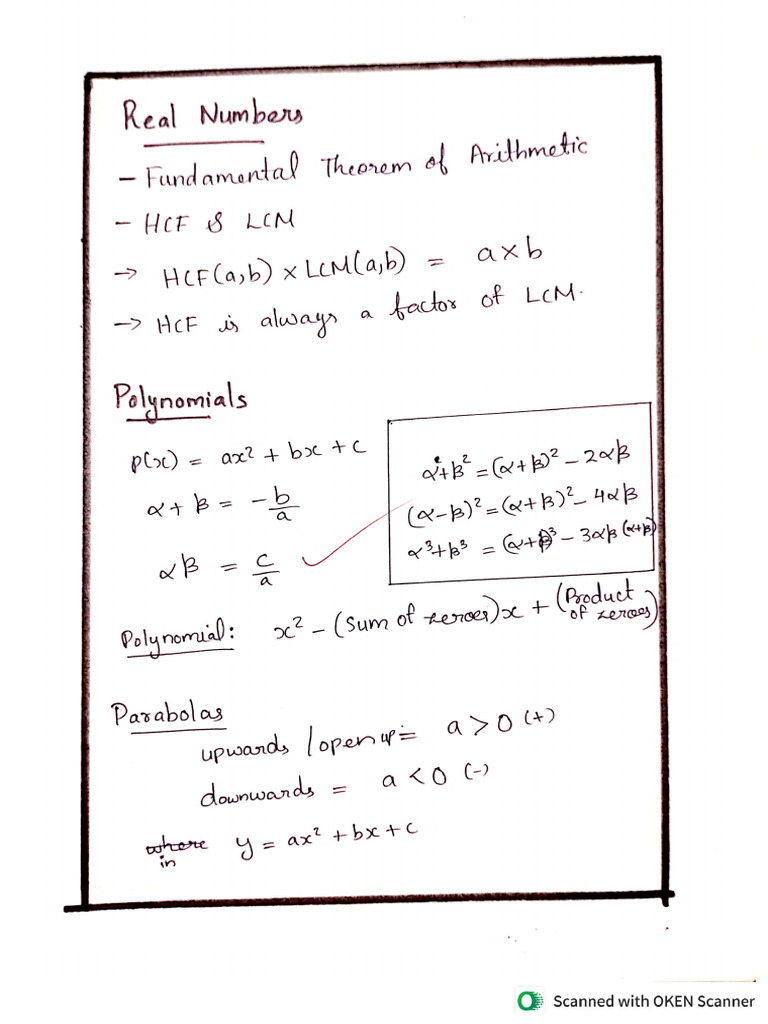 Real Numbers
- Fundamental Theorem of Arithmetic
- HCF & LCM
→ HCF(a,b) × LCM(a,b) = a×b
→ HCF is always a factor of LCM.
Polynomials
p(x) = ax² + bx + c
α + β = -b/a
αβ = c/a
α²+β² = (α+β)² - 2αβ
(α-β)² = (α+β)² - 4αβ
α³+β³ = (α+β)³ - 3αβ(α+β)
Polynomial: x² - (Sum of zeroes)x + (Product of zeroes)
Parabolas
upwards /open up = a > 0 (+)
downwards = a < 0 (-)
where in y = ax² + bx + c
Scanned with OKEN Scanner